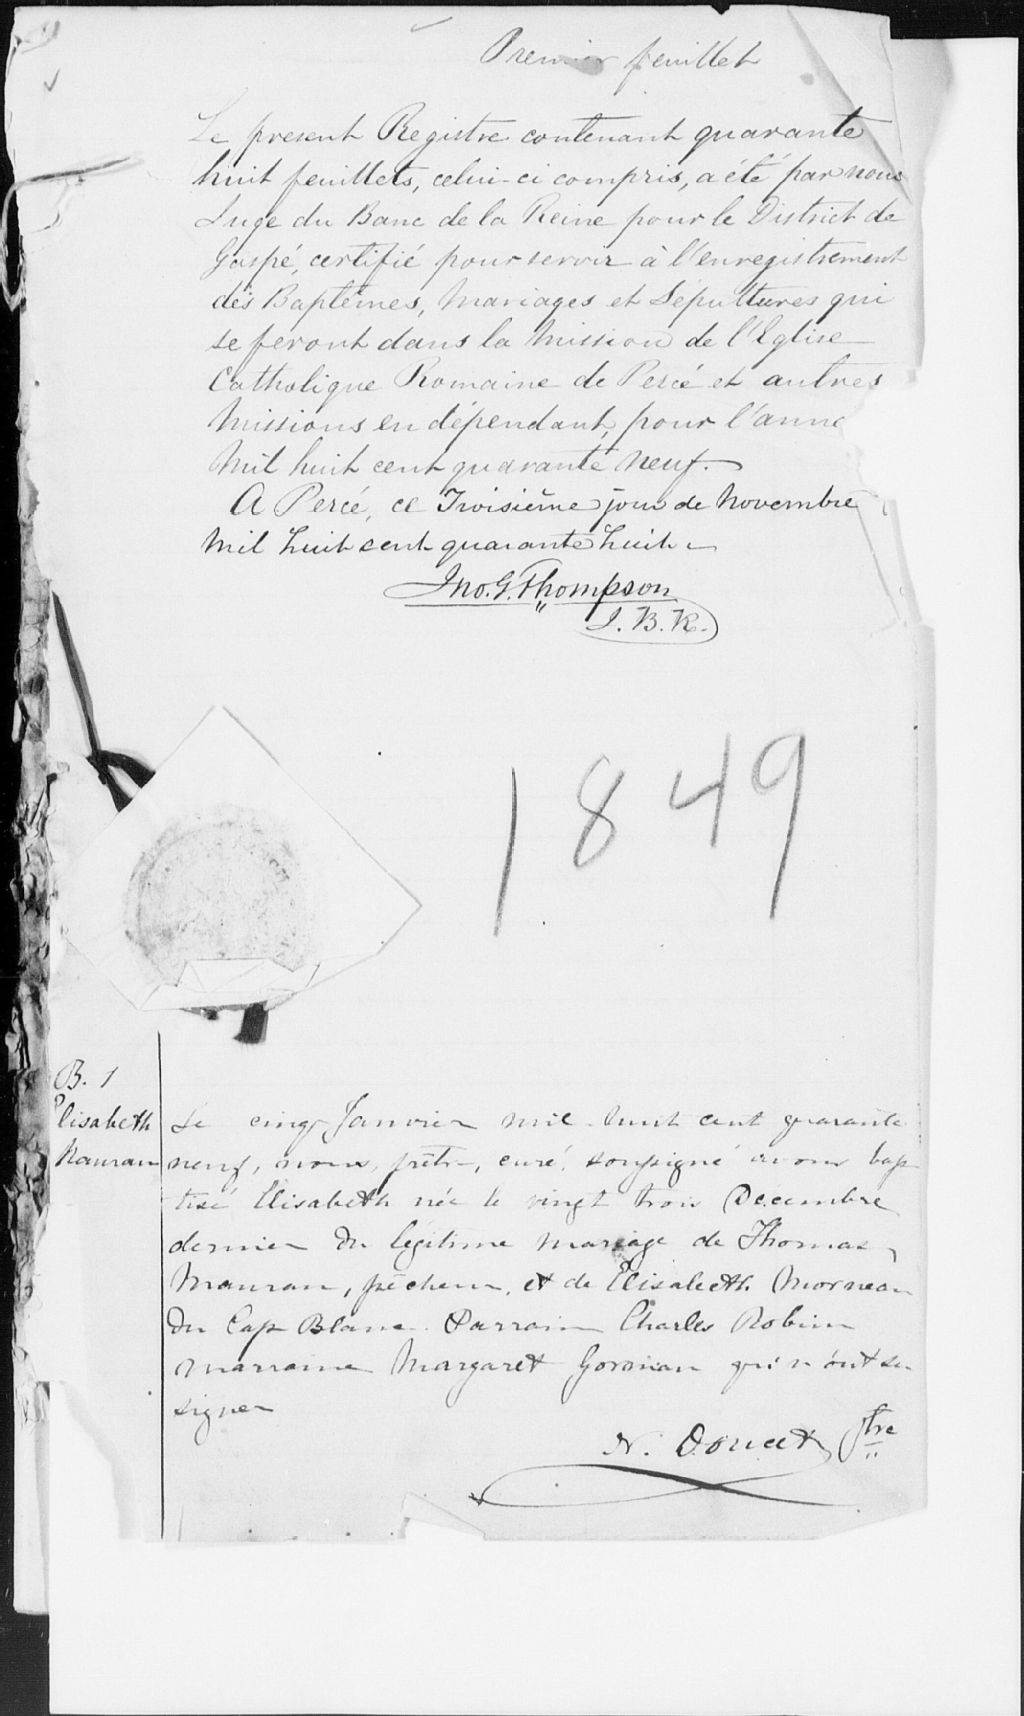 Premier feuillet
Le present Registre contenant quarante
huit feuillets, celui-ci compris, a été par nous
Juge du Banc de la Reine pour le District de
Gaspé, certifié pour servir à l'enregistrement
des Baptêmes, Mariages et Sépultures qui
se feront dans la Mission de l'Eglise
Catholique Romaine de Percé et autres
Missions en dépendant, pour l'anne
Mil huit cent quarante neuf.
A Percé, ce Troisième jour de Novembre
Mil huit cent quarante huit
Jno. G. Thompson
J. B. R.
1849
B. 1
Elisabeth
Mauran
Le cinq Janvier mil huit cent quarante
neuf, nous, prêtre, curé, soussigné avons bap
tisé Elisabeth née le vingt trois Décembre
dernier du légitime mariage de Thomas
Mauran, pêcheur, et de Elisabeth Morneau
du Cap Blanc. Parrain Charles Robin
marraine Margaret Gorman qui n'ont su
signer
N. Doucet Ptre